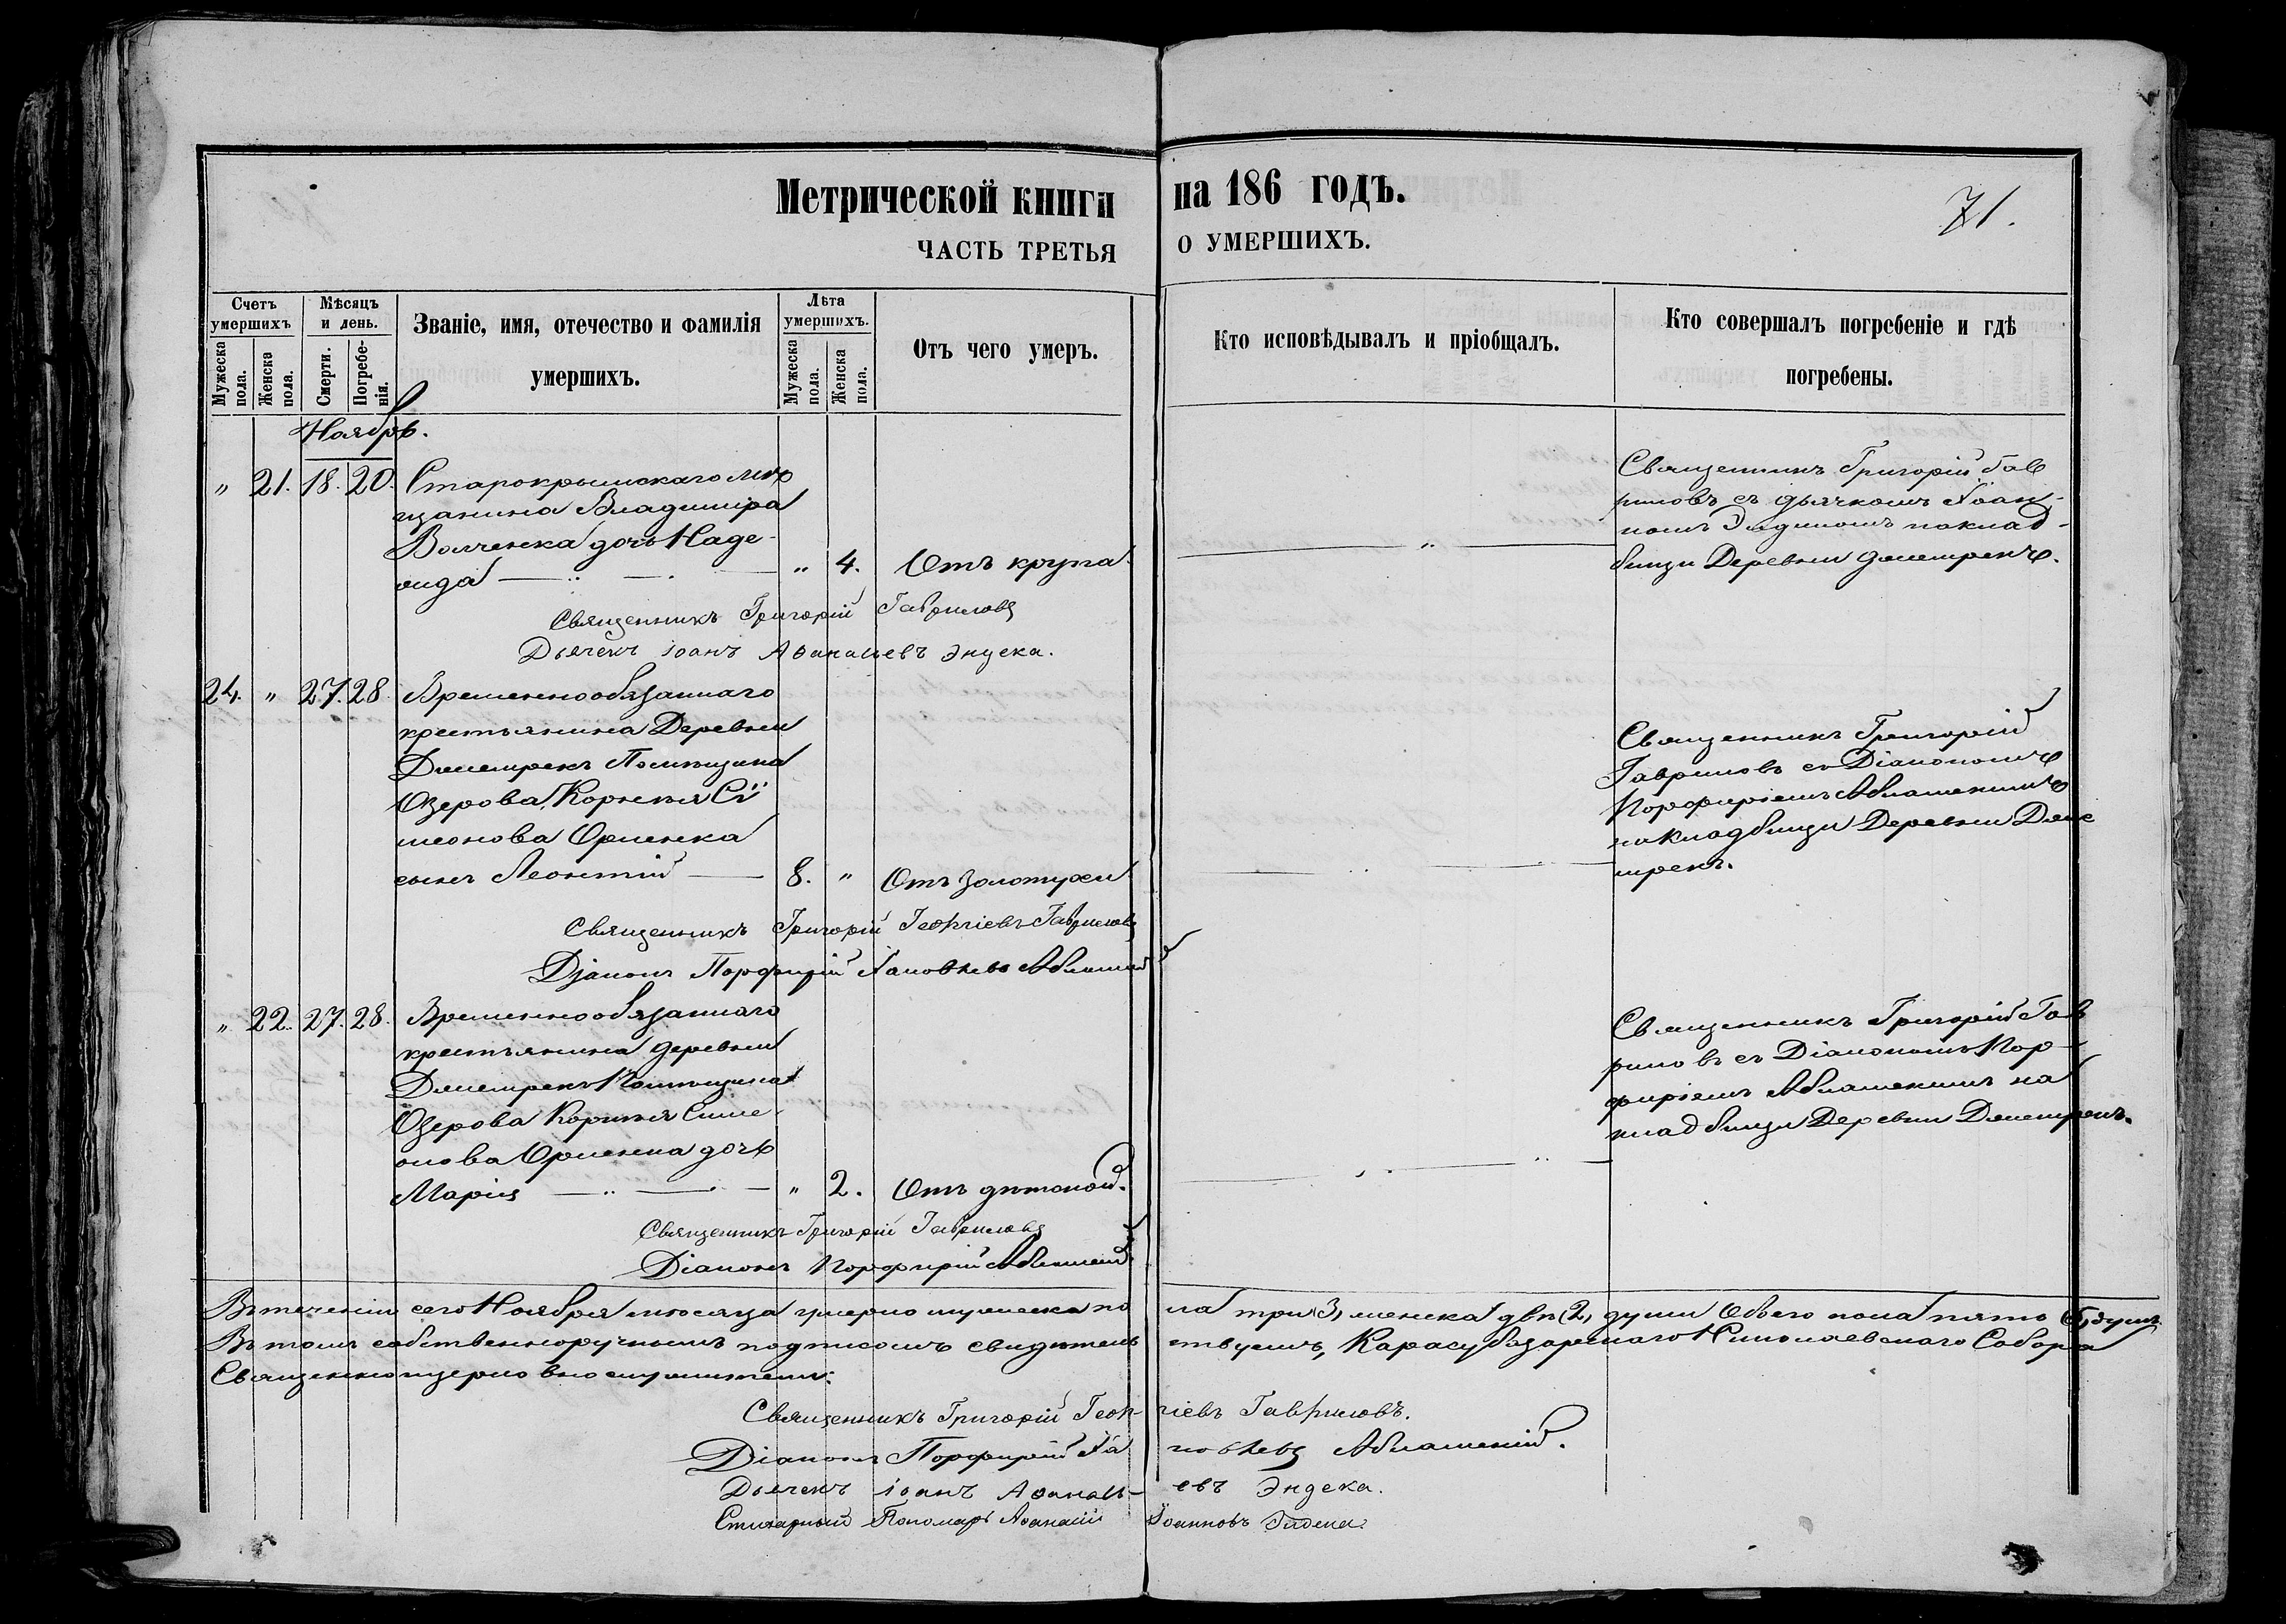 Метрической книги на 186 годъ.
71.
ЧАСТЬ ТРЕТЬЯ О УМЕРШИХЪ.
Счетъ умершихъ
Мужеска пола.
Женска пола.
Мѣсяцъ и день.
Смерти.
Погребенія.
Званіе, имя, отечество и фамилія
умершихъ.
Лѣта умершихъ.
Мужеска пола.
Женска пола.
Отъ чего умеръ.
Кто исповѣдывалъ и пріобщалъ.
Кто совершалъ погребеніе и гдѣ
погребены.
Ноябрь.
" 21. 18. 20. Старокрымскаго мѣ
щанина Владиміра
Волченка дочь Наде-
жда " 4. Отъ крупа
Священникъ Григорій Гав
риловъ съ дьячкомъ Іоан-
номъ на клад-
бищи Деревни
Священникъ Григорій Гавриловъ
Дьячекъ Іоанъ Аѳанасьевъ Эндека.
24. " 27. 28. Временнообязаннаго
крестьянина Деревни
Помѣщика
Озерова, Корнея Си
меонова
сынъ Леонтій 8. " Отъ золотухи
Священникъ Григорій
Гавриловъ съ Діакономъ
Порфиріемъ
на кладбищи Деревни
Священникъ Григорій Георгіевъ Гавриловъ
Діаконъ Порфирій Яковлевъ
" 22. 27. 28. Временнообязаннаго
крестьянина деревни
Помѣщика
Озерова Корнея Симе
онова дочь
Марія " 2. Отъ
Священникъ Григорій Гав
риловъ съ Діакономъ Пор-
фиріемъ на
кладбищи Деревни
Священникъ Григорій Гавриловъ
Діаконъ Порфирій
Въ теченіи сего Ноября мѣсяца умерло мужеска по ла три (3) женска двѣ (2) души Обоего пола пять (5) душъ
Въ томъ собственноручнымъ подписомъ свидѣтель ствуемъ, Карасубазарскаго Николаевскаго Собора
Священноцерковнослужители:
Священникъ Григорій Геор- гіевъ Гавриловъ.
Діаконъ Порфирій Яковлевъ
Дьячекъ Іоанъ Аѳанась- евъ Эндека.
Стихарный Пономарь Аѳанасій Іоанновъ Эндека.